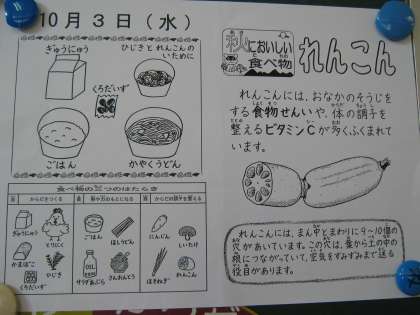 10月3日(水)
ぎゅうにゅう
ひじきと れんこんの
いために
くろだいず
ごはん
かやくうどん
食べ物の三つのはたらき
からだをつくる
熱や力のもとになる
からだの調子を整える
ぎゅうにゅう
とりにく
かまぼこ
ひじき
くろだいず
ごはん
ほしうどん
サラダあぶら
さんおんとう
にんじん
しいたけ
ほそねぎ
れんこん
秋においしい
食べ物
れんこん
れんこんには、おなかのそうじを
する食物せんいや、体の調子を
整えるビタミンCが多くふくまれて
います。
れんこんには、まん中とまわりに9～10個の
穴があいています。この穴は、葉から土の中の
根につながっていて、空気をすみずみまで送る
役目があります。